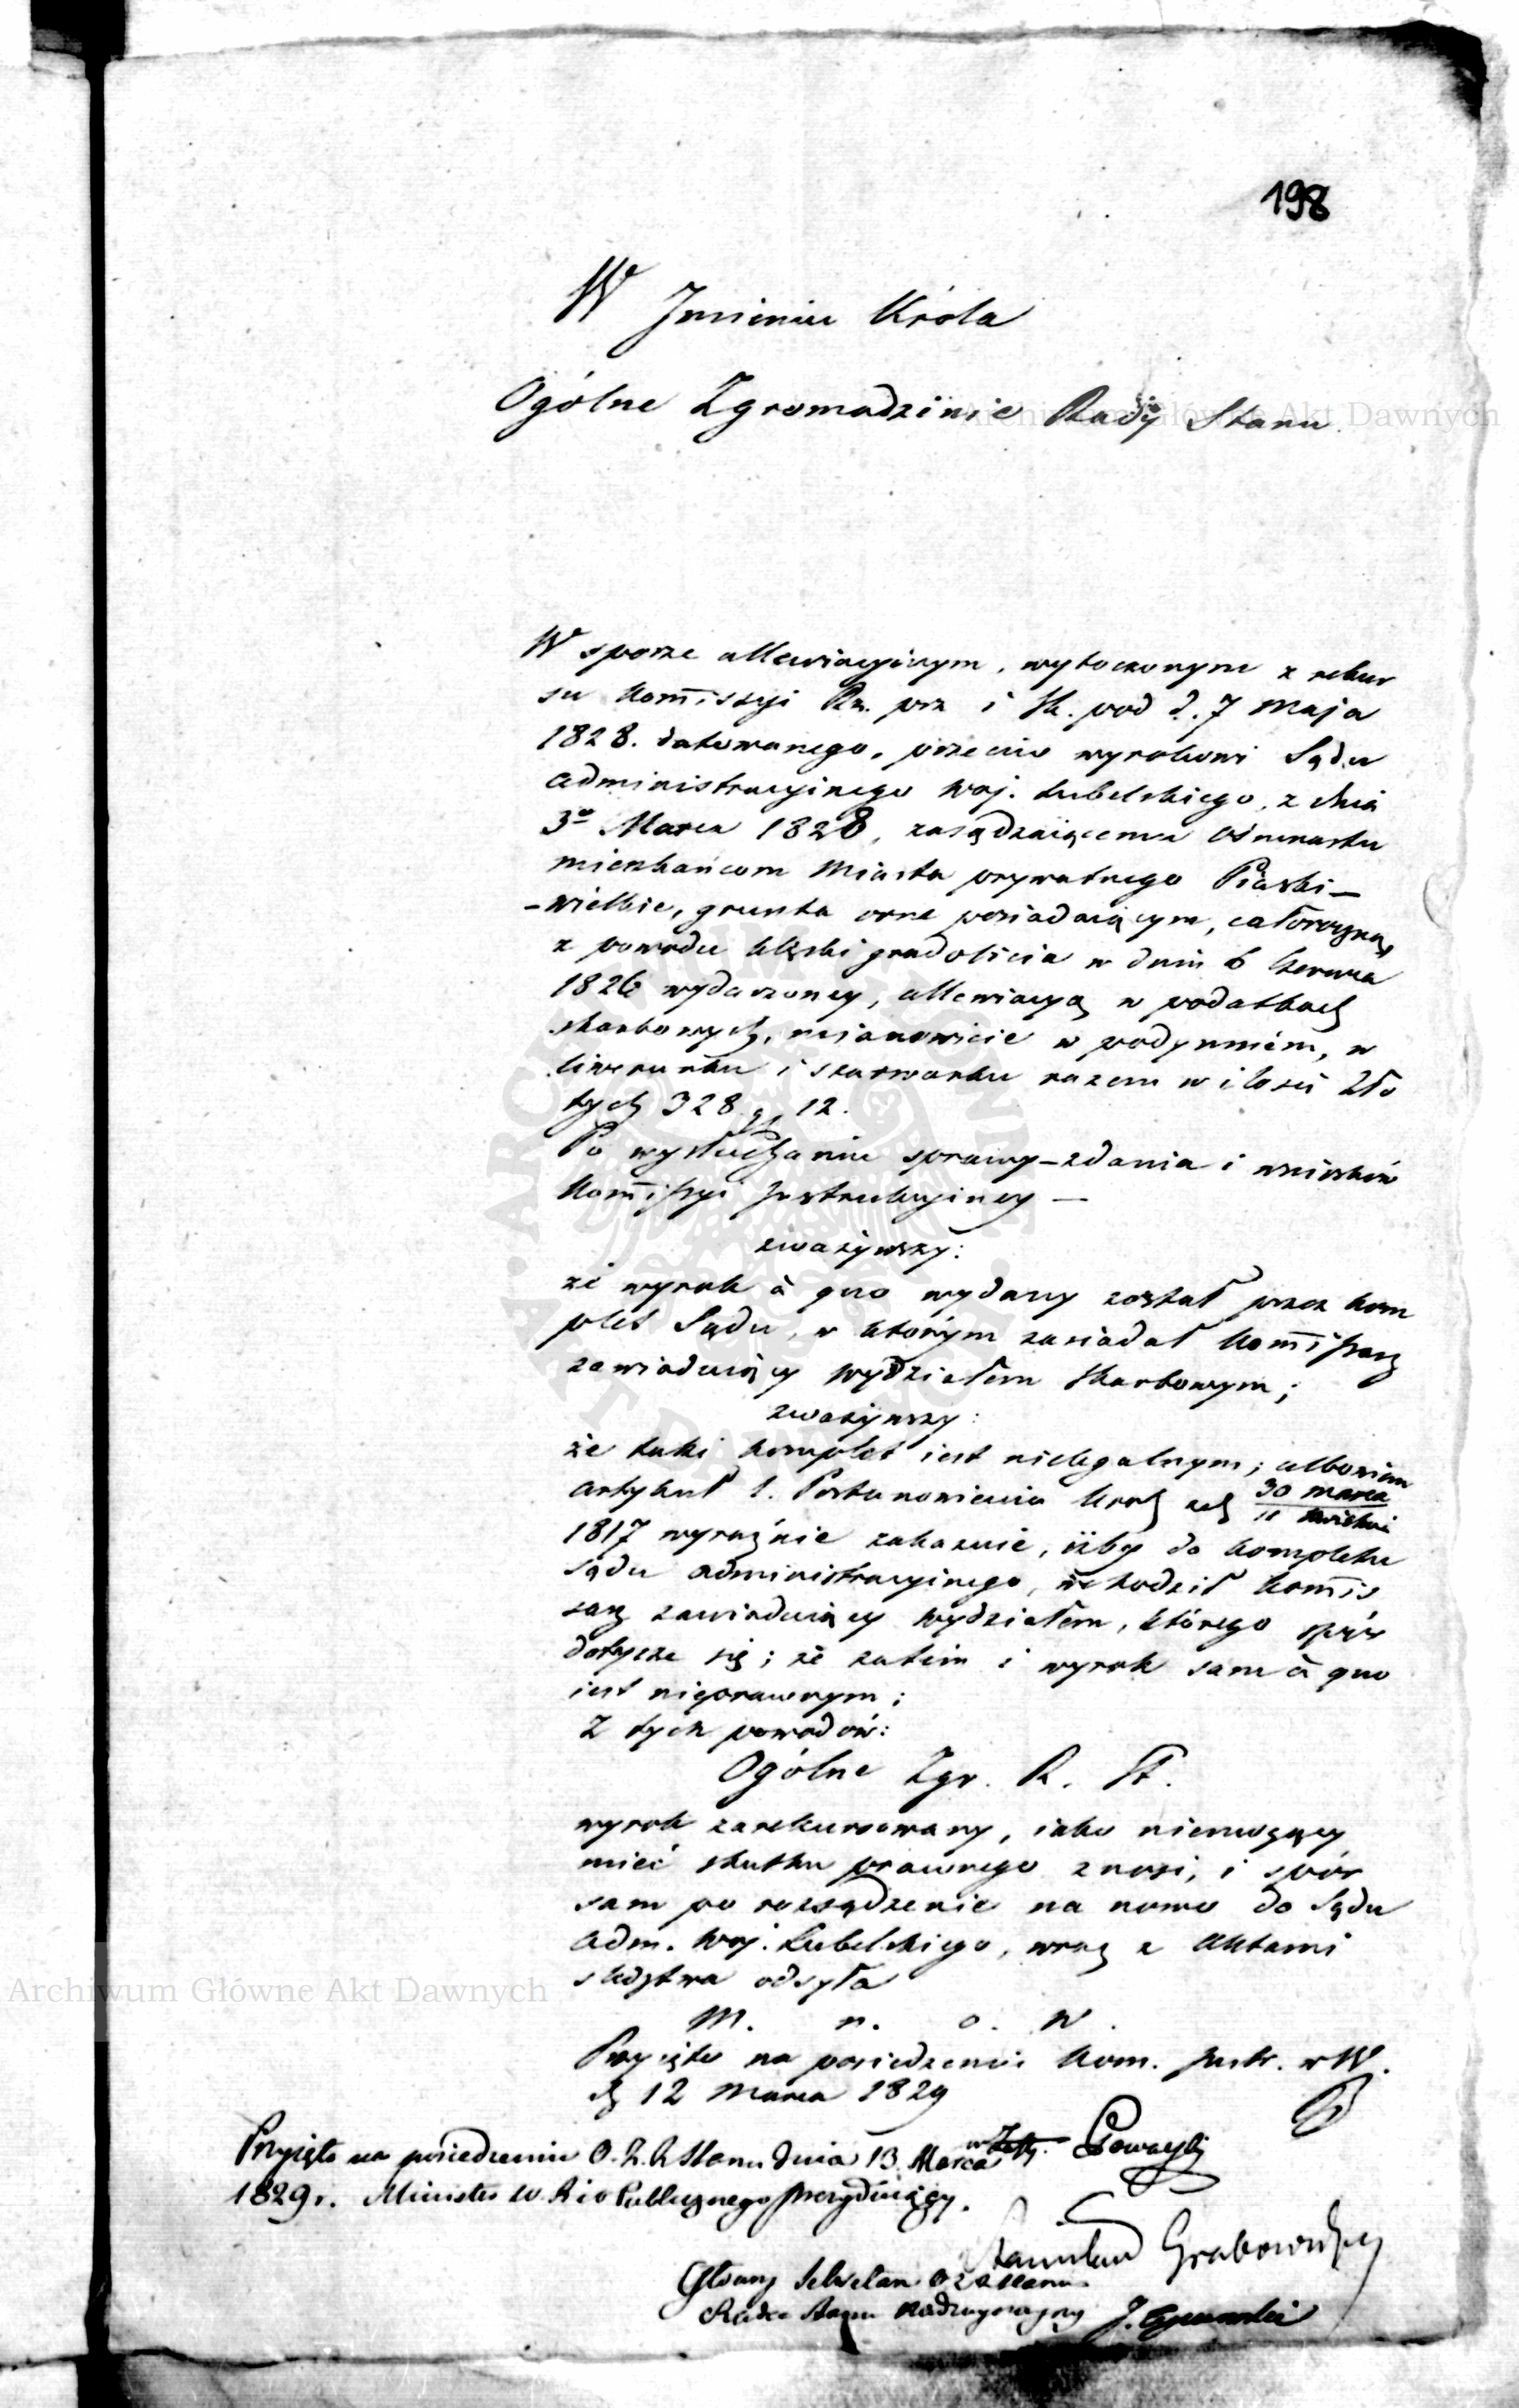 198
W Imieniu Króla
Ogólne Zgromadzenie Rady Stanu
W sporze allewiacyinym, wytoczonym z rekur
su Kommissyi Rz. prz i Sk. pod d. 7 Maja
1828. datowanego, przeciw wyrokowi Sądu
administracyinego woj. Lubelskiego, z dnia
3o Marca 1828, zasądzaiącemu ośmnastu
mieszkańcom Miasta prywatnego Piaski–
–wielkie, grunta orne posiadaiącym, całoroczną
z powodu klęski gradobicia w dniu 6 Czerwca
1826 wydarzoney, allewiacyą w podatkach
skarbowych, mianowicie w podymném, w
liwerunku i szarwarku razem w ilości Zło
tych 328 gr 12.
Po wysłuchaniu sprawy–zdania i wniosków
Kommissyi Instrukcyiney —
zważywszy:
że wyrok à quo wydany został przez kom
plet Sądu, w którym zasiadał Kommissarz
zawiaduiący Wydziałem Skarbowym;
zważywszy:
że taki komplet iest nielegalnym; albowiem
artykuł 1. Postanowienia Król z d 30 marca
11 kwietnia
1817 wyraźnie zakazuie, iżby do kompletu
sądu administracyinego, wchodził Kommis
sarz zawiaduiący wydziałem, którego spór
dotycze się; że zatém i wyrok sam à quo
iest nieprawnym;
Z tych powodów:
Ogólne Zgr. R. St.
wyrok zarekursowany, iako niemogący
mieć skutku prawnego znosi, i spór
sam po rozsądzenie na nowo do Sądu
Adm. Woj. Lubelskiego, wraz z Aktami
śledztwa odsyła
M. n. o. W.
Przyięto na posiedzeniu Kom. Instr. w W.
d 12 Marca 1829
Przyięto na posiedzeniu O. Z. R Stanu dnia 13. Marca
1829 r. Minister W. R i O Publicznego prezyduiący.
Stanisław Grabowski
Główny Sekretarz O Z R Stanu
Radca Stanu Nadzwyczayny J.
Archiwum Główne Akt Dawnych
Archiwum Główne Akt Dawnych